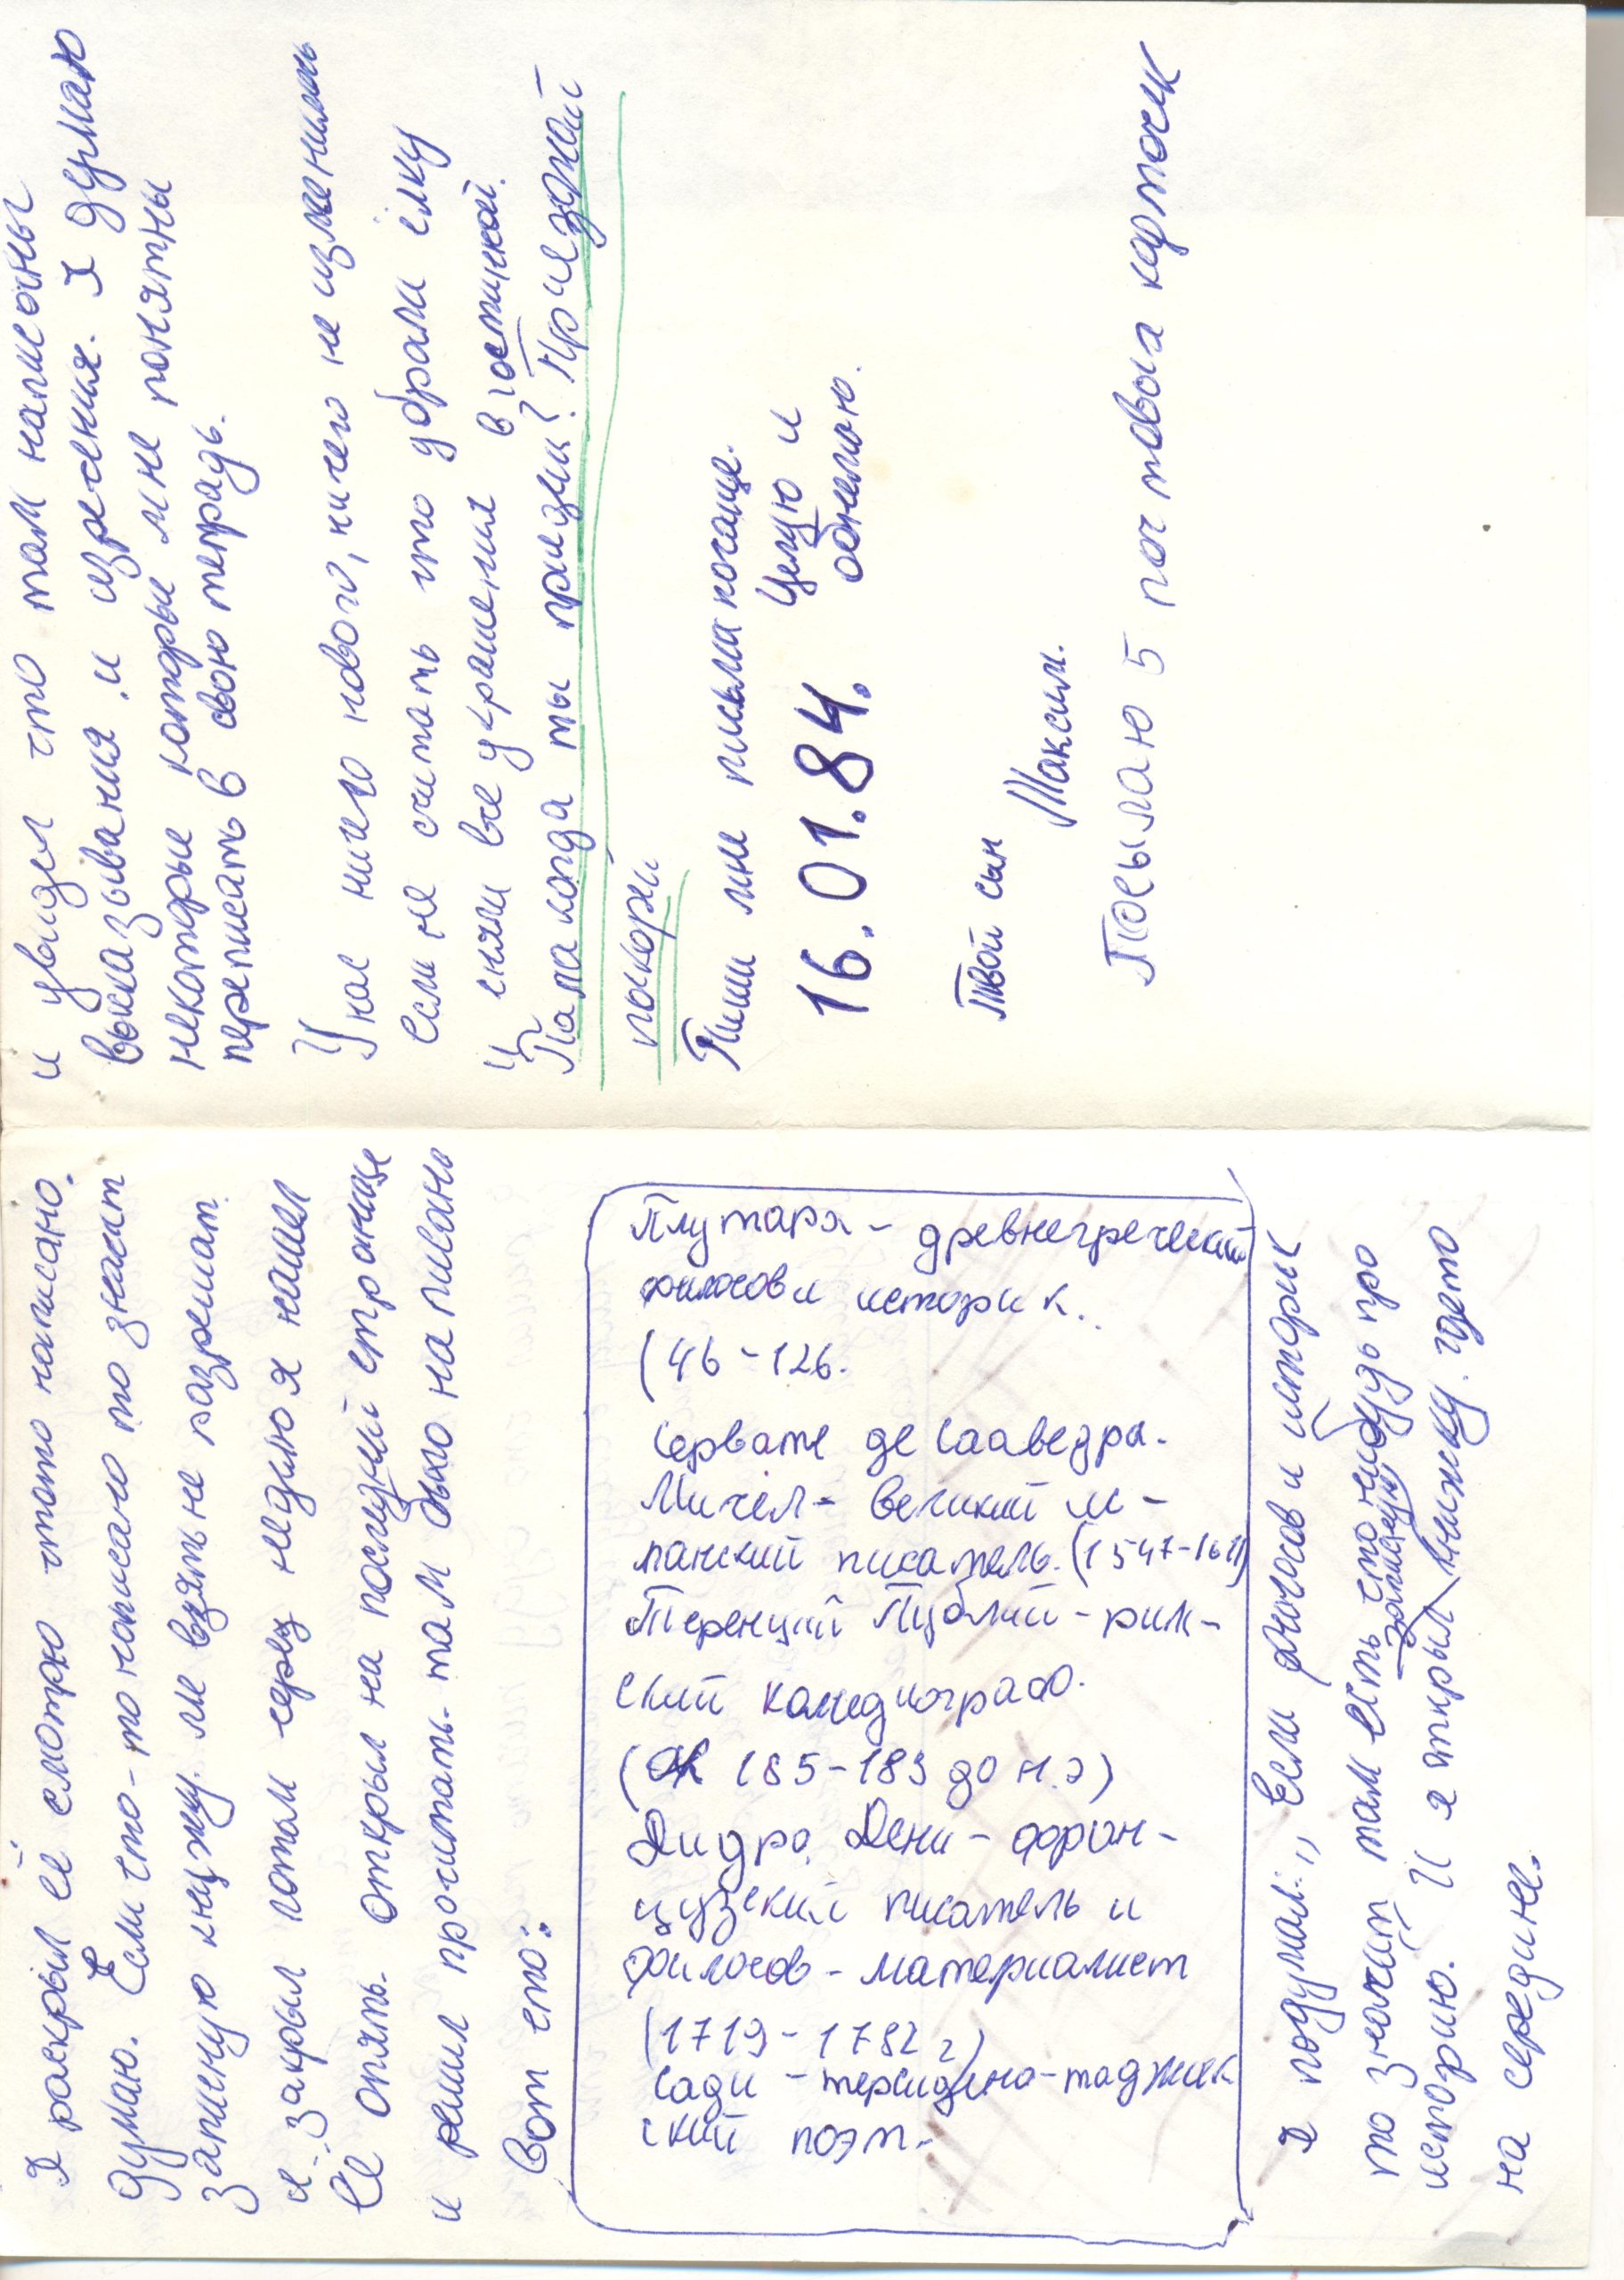 Я раскрыл её смотрю чтото написано.
Думаю. Если что-то написано то значит
запишу книжку. м взять не разрешат
и закрыл потом через неделю я нашел
Её опять. Открыл на последний странице
и решил прочитать. там было написано
Вот что:
Плутарх - древнегреческий
философ и историк.
(46-126.
Сервате де Сааведра.
Мичел - великий ис-
панский писатель. (1547-16
Теренций Публий - рим-
ский комедиограф.
(185-183 до н.э)
Дидро Дени - фран-
цузский писатель и
философ - материалист
(1719-1782 г)
Сади - персидско-таджик
ский поэт-
Я подумал: „Если философ и историк
то значит там есть что нибудь про
историю. И я открыл книжку. гдето
на середине.
и увидел что там написаны
высказывания и изречения. Я думаю
некоторые которые мне понятны
переписать в свою тетрадь.
У нас ничего нового, ничего не изменилось
Если не считать что убрали ёлку
и сняли все украшения в гостинной.
Папа когда ты приедеш? Приезжай
поскорей
Пиши мне письма почаще.
16.01.84. Целую и
обнемаю.
Твой сын Максим.
Посылаю 5 почтовых карточек